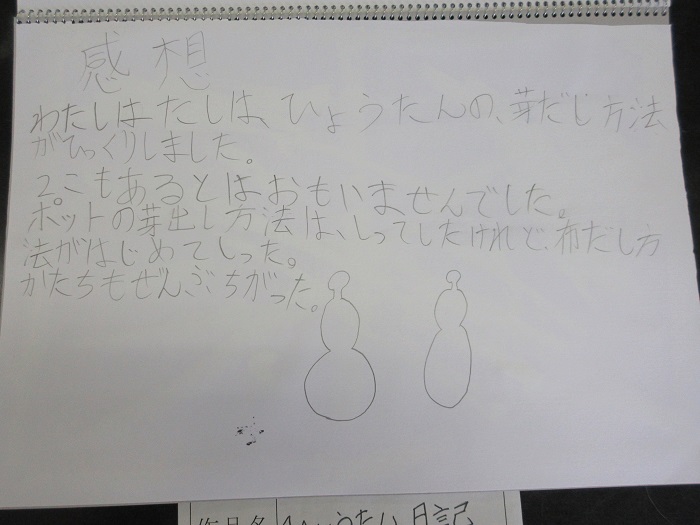 感想
わたしはたしは、ひょうたんの、芽だし方法
がびっくりしました。
2こもあるとはおもいませんでした。
ポットの芽出し方法は、しってしたけれど、布だし方
法がはじめてしった。
かたちもぜんぶちがった。
作品名 ひょうたん日記